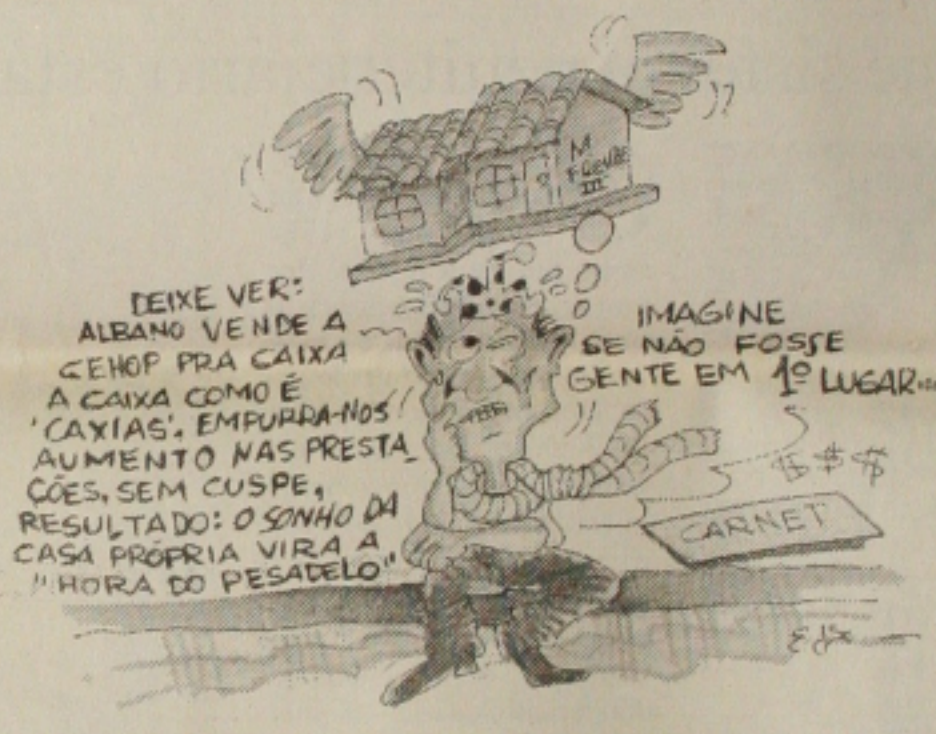 M
F. FREIRE
III
DEIXE VER:
ALBANO VENDE A
CEHOP PRA CAIXA
A CAIXA COMO É
'CAXIAS', EMPURRA-NOS
AUMENTO NAS PRESTA_
ÇÕES, SEM CUSPE,
RESULTADO: O SONHO DA
CASA PRÓPRIA VIRA A
"HORA DO PESADELO"
IMAGINE
SE NÃO FOSSE
GENTE EM 1º LUGAR...
$ $ $
CARNET